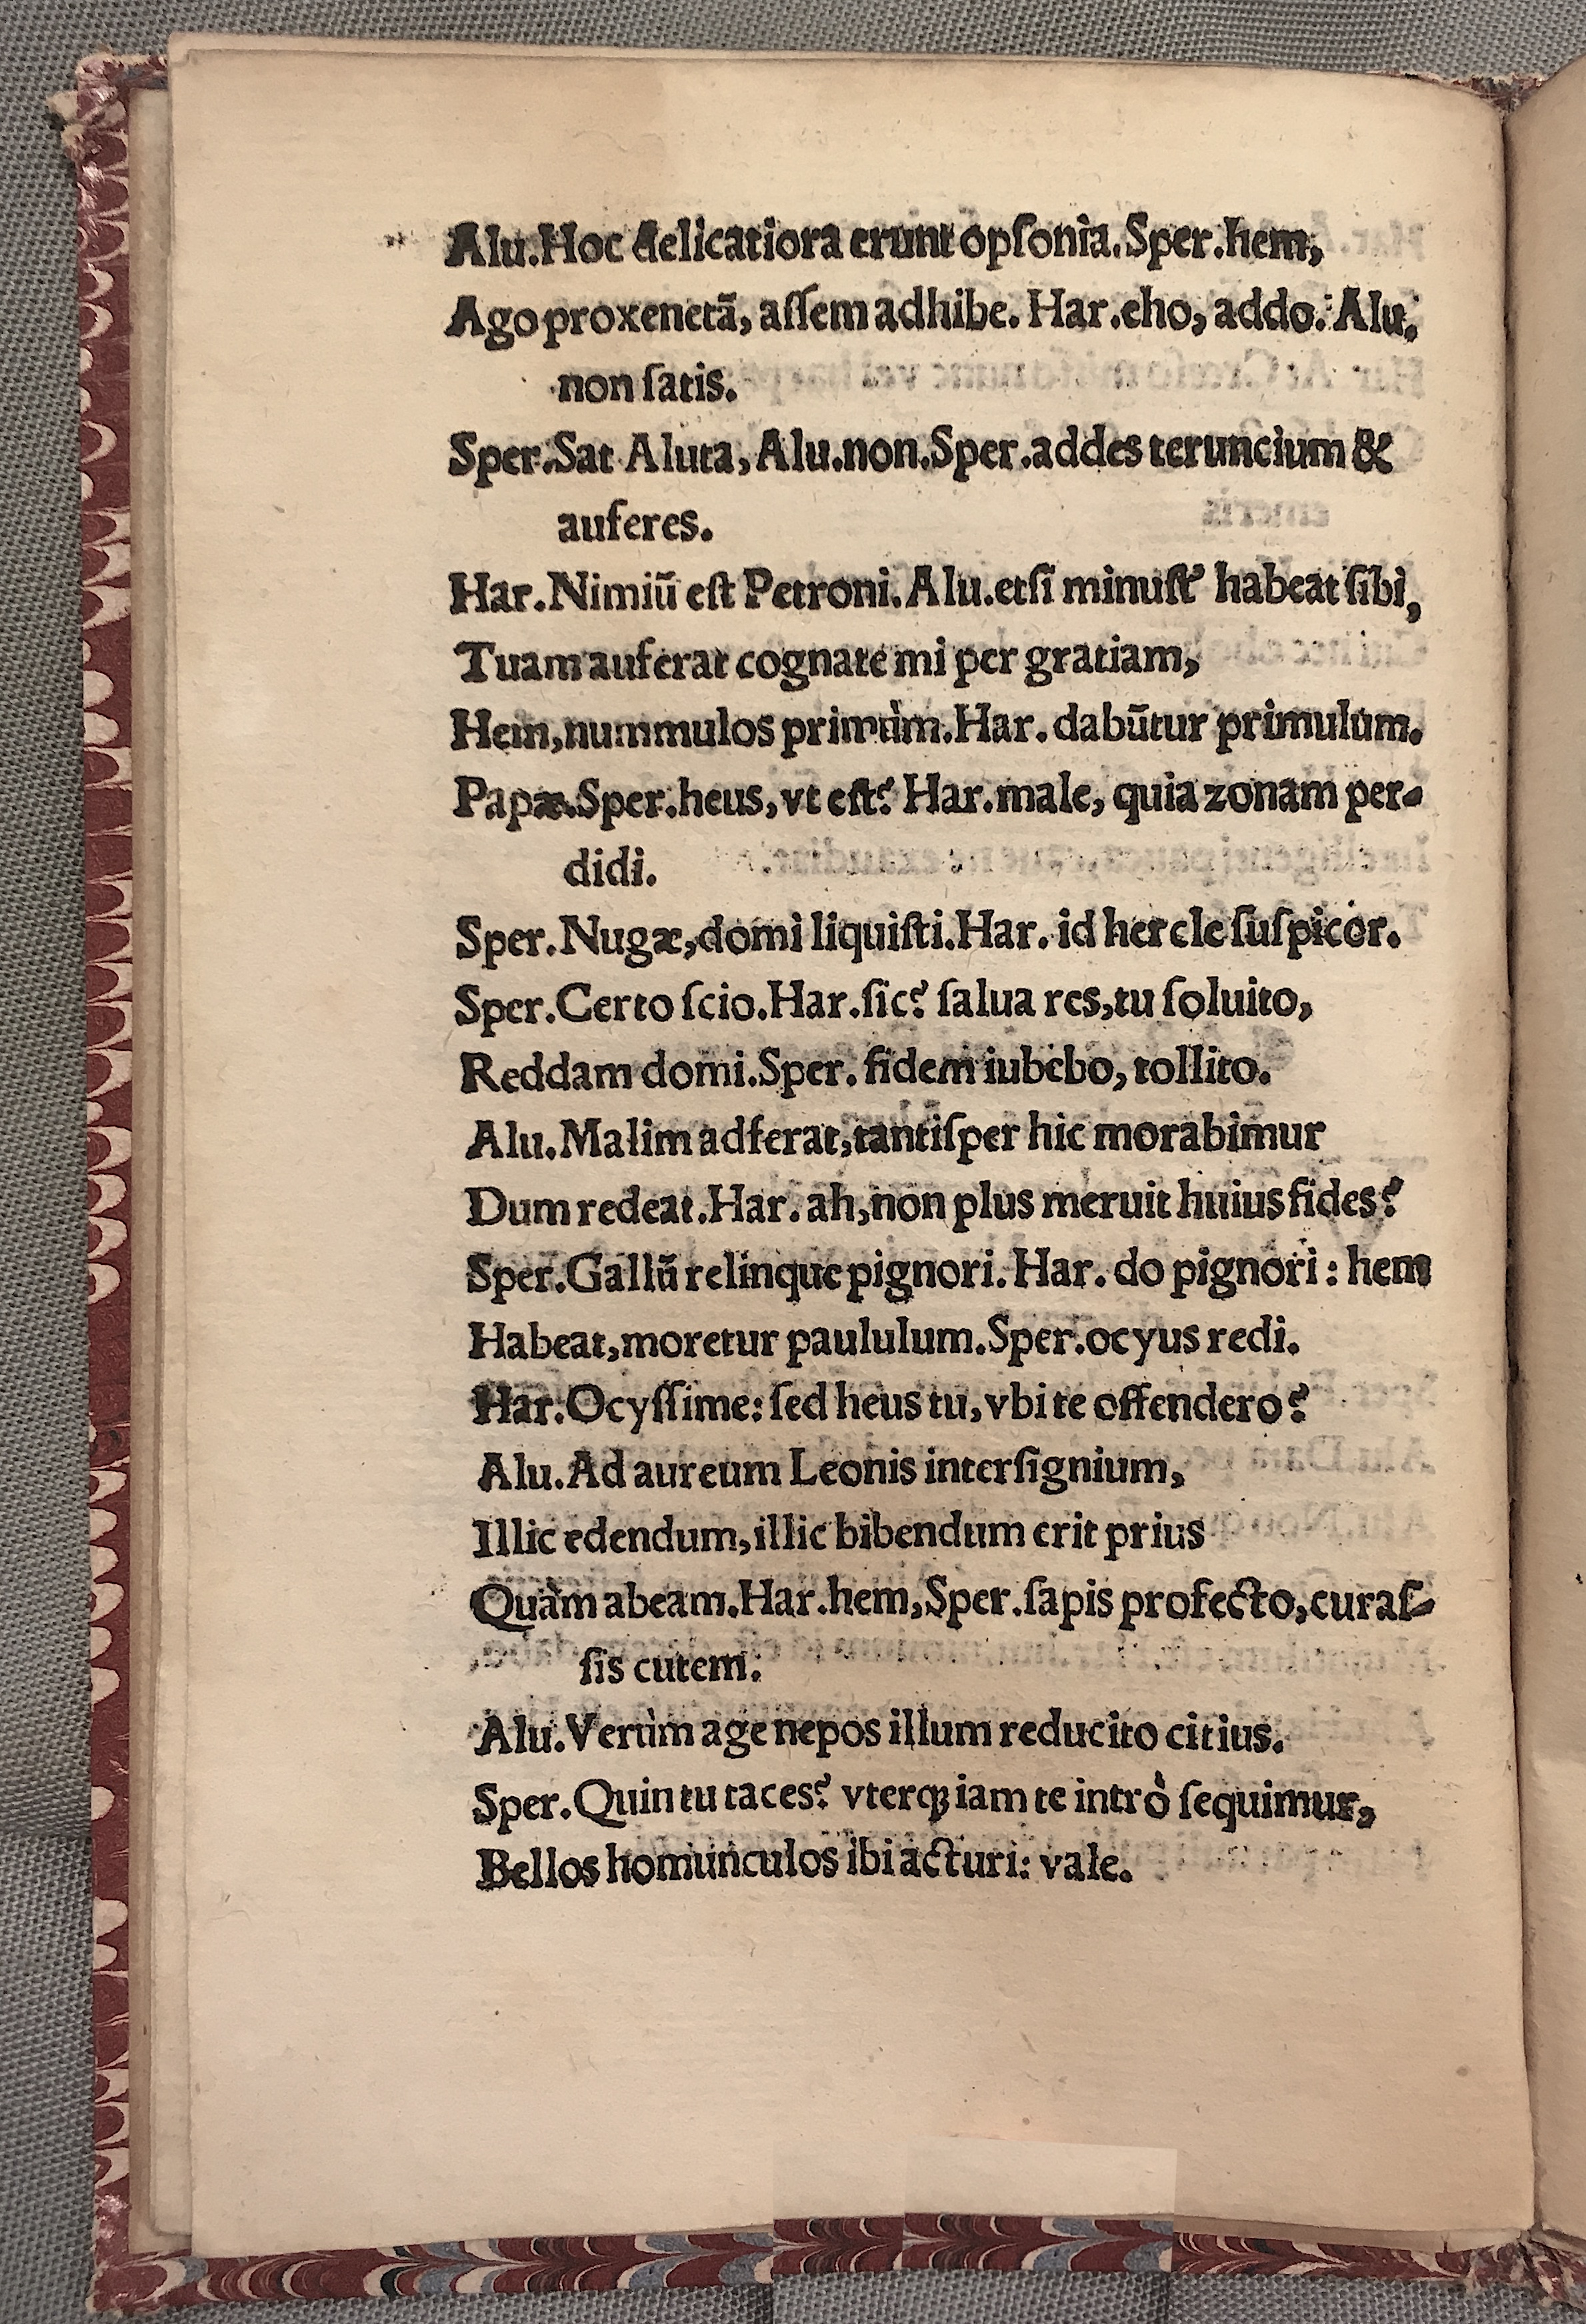 Alu.Hoc delicatiora erunt opſonia.Sper.hem,
Ago proxenetā, aſſem adhibe. Har.eho, addo. Alu.
non ſatis.
Sper.Sat Aluta, Alu.non.Sper.addes teruncium &
auferes.
Har.Nimiū eſt Petroni.Alu.etſi minuſt' habeat ſibi,
Tuam auferat cognate mi per gratiam,
Hem,nummulos primùm.Har. dabūtur primulùm.
Papæ.Sper.heus,vt eſt? Har.male, quia zonam per-
didi.
Sper.Nugæ,domi liquiſti.Har. id hercle ſuſpicor.
Sper.Certo ſcio.Har.ſic? ſalua res,tu ſoluito,
Reddam domi.Sper. fidem iubebo, tollito.
Alu.Malim adferat,tantiſper hic morabimur
Dum redeat.Har. ah,non plus meruit huius fides?
Sper.Gallū relinque pignori. Har. do pignori : hem
Habeat,moretur paululum.Sper.ocyus redi.
Har.Ocyſſime: ſed heus tu, vbi te offendero?
Alu.Ad aureum Leonis interſignium,
Illic edendum,illic bibendum erit prius
Quàm abeam.Har.hem,Sper.ſapis profecto,curaſ-
ſis cutem.
Alu.Verùm age nepos illum reducito citius.
Sper.Quin tu taces? vterqꝫ iam te intrò ſequimur,
Bellos homunculos ibi acturi: vale.